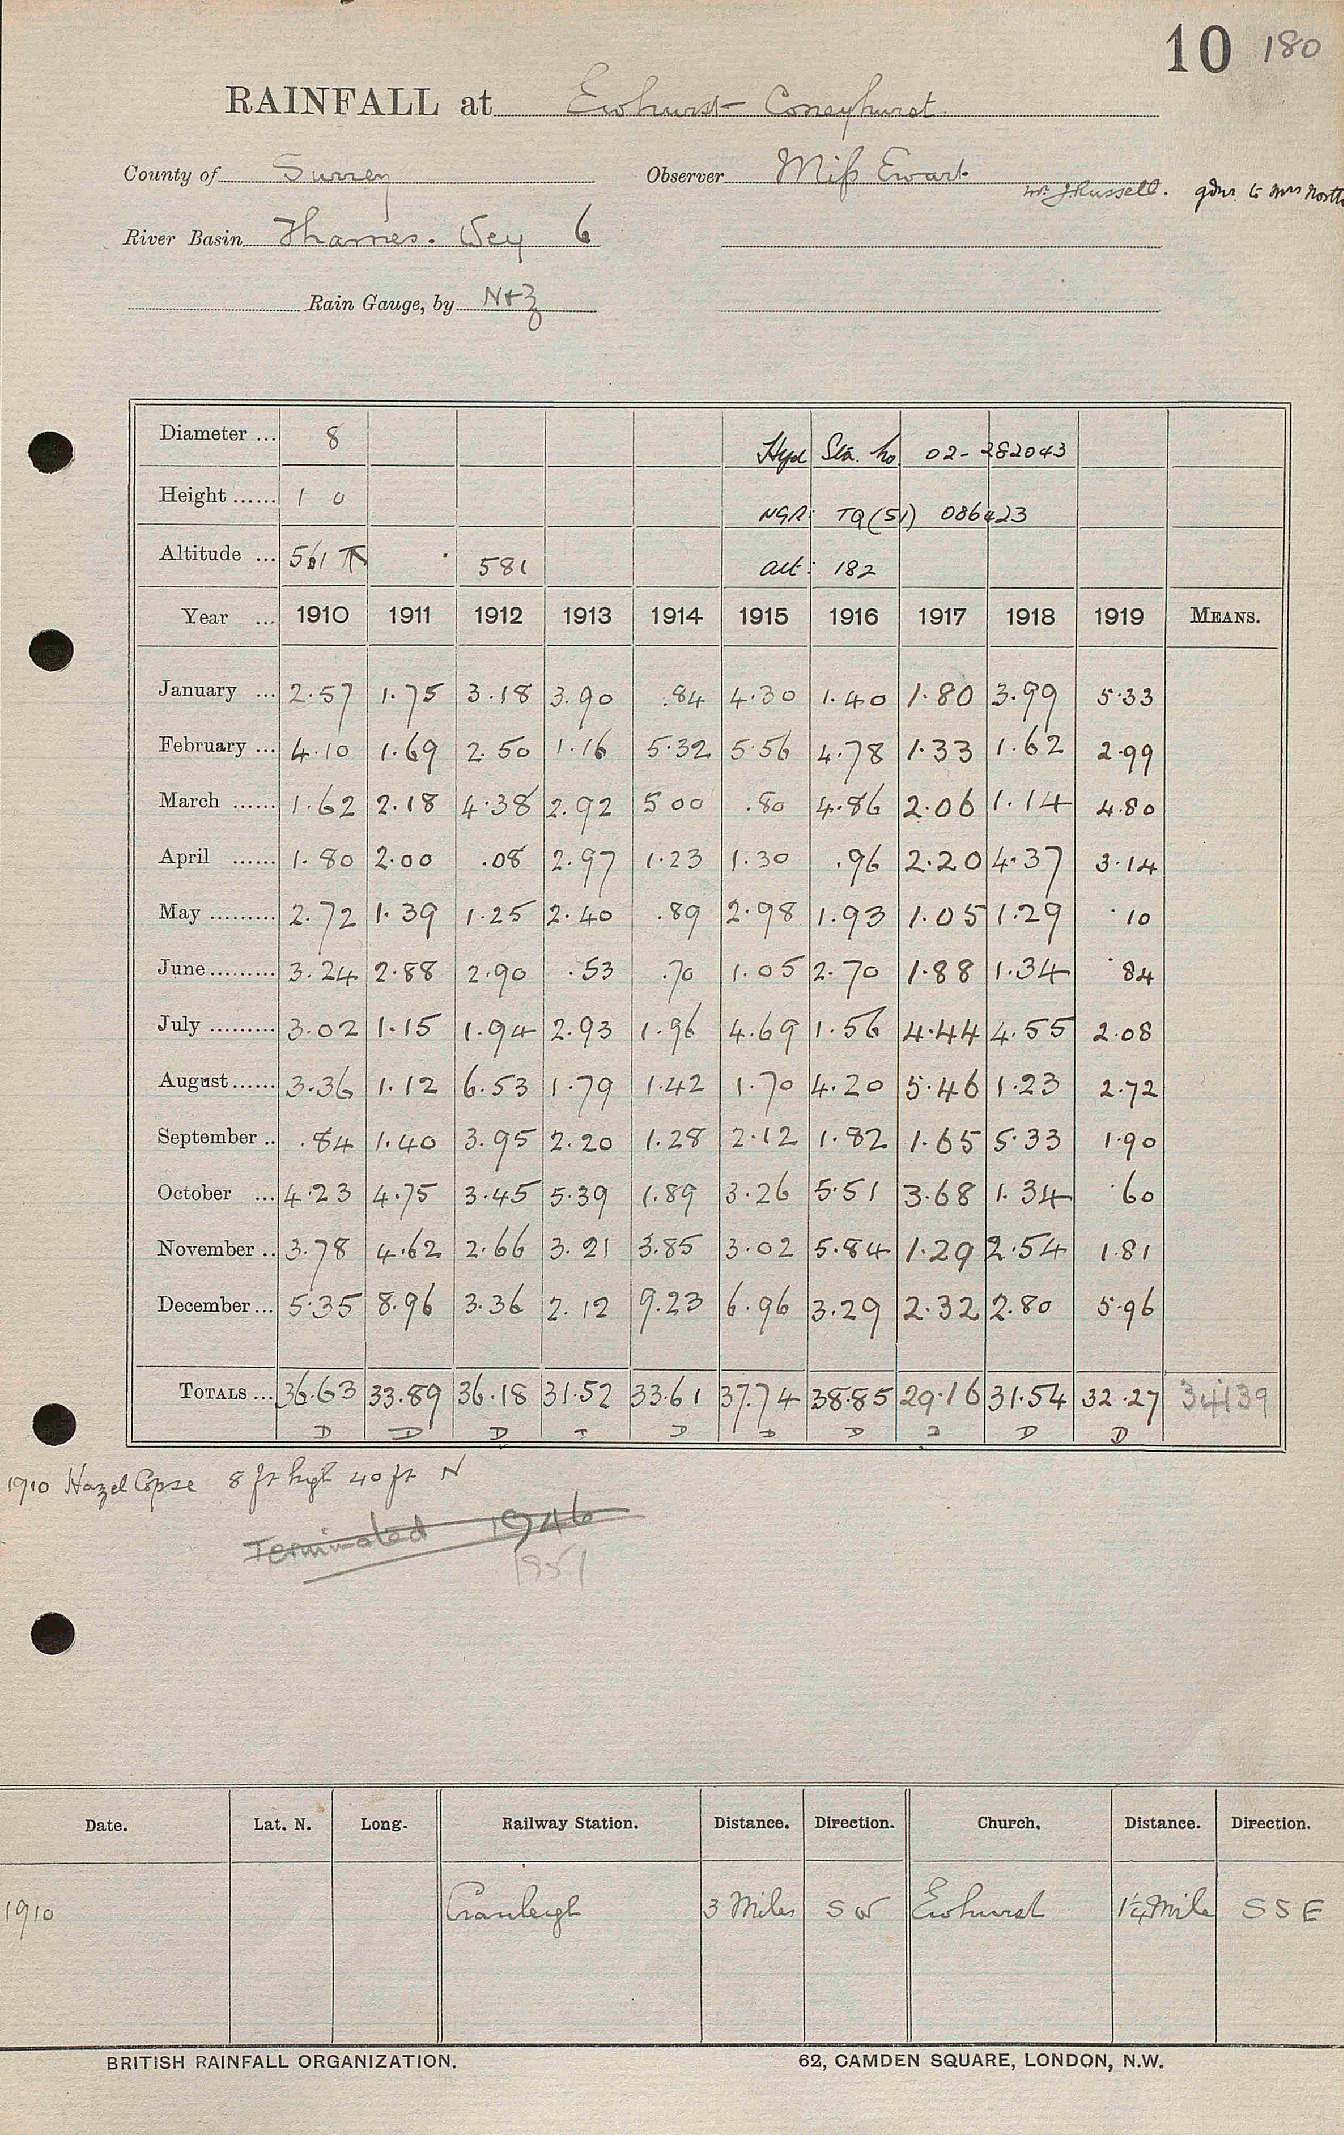 10 180
RAINFALL at Ewhurst Coneyhurst
County of Surrey Observer Miss Ewart
Mr. J. Russell. gdnr. to Mrs North
River Basin Thames. Wey 6
Rain Gauge, by N+Z
Diameter ... 8 Hyd Sta. No 02-282043
Height ...... 1 0 NGR: TQ (51) 086423
Altitude ... 561 T 581 alt: 182
Year ... 1910 1911 1912 1913 1914 1915 1916 1917 1918 1919 MEANS.
January ... 2.57 1.75 3.18 3.90 .84 4.30 1.40 1.80 3.99 5.33
February ... 4.10 1.69 2.50 1.16 5.32 5.56 4.78 1.33 1.62 2.99
March ...... 1.62 2.18 4.38 2.92 5 00 .80 4.86 2.06 1.14 4.80
April ...... 1.80 2.00 .08 2.97 1.23 1.30 .96 2.20 4.37 3.14
May ......... 2.72 1.39 1.25 2.40 .89 2.98 1.93 1.05 1.29 .10
June ......... 3.24 2.88 2.90 .53 .70 1.05 2.70 1.88 1.34 .84
July ......... 3.02 1.15 1.94 2.93 1.96 4.69 1.56 4.44 4.55 2.08
August ...... 3.36 1.12 6.53 1.79 1.42 1.70 4.20 5.46 1.23 2.72
September .. .84 1.40 3.95 2.20 1.28 2.12 1.82 1.65 5.33 1.90
October ... 4.23 4.75 3.45 5.39 1.89 3.26 5.51 3.68 1.34 .60
November .. 3.78 4.62 2.66 3.21 3.85 3.02 5.84 1.29 2.54 1.81
December ... 5.35 8.96 3.36 2.12 9.23 6.96 3.29 2.32 2.80 5.96
TOTALS ... 36.63 33.89 36.18 31.52 33.61 37.74 38.85 29.16 31.54 32.27 34139
D D D T D D D D D D
1910 Hazel Copse 8 ft hgh 40 ft N
Terminated 1946
1951
Date. Lat. N. Long. Railway Station. Distance. Direction. Church. Distance. Direction.
1910 Cranleigh 3 Miles S W Ewhurst 1¼ Mile S S E
BRITISH RAINFALL ORGANIZATION. 62, CAMDEN SQUARE, LONDON, N.W.